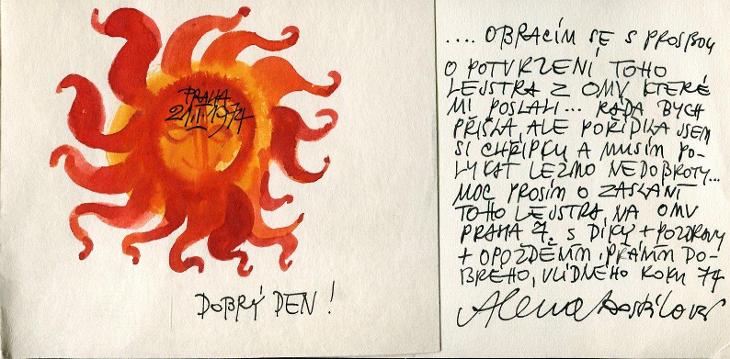 PRAHA
21.I.1974
DOBRÝ DEN!
.... OBRACÍM SE S PROSBOU
O POTVRZENÍ TOHO
LEJSTRA Z OMV KTERÉ
MI POSLALI... RÁDA BYCH
PŘIŠLA, ALE POŘÍDILA JSEM
SI CHŘIPKU A MUSÍM PO-
LYKAT LEŽMO NEDOBROTY...
MOC PROSÍM O ZASLÁNÍ
TOHO LEJSTRA, NA OMV
PRAHA 7. S DÍKY + POZDRAVY
+ OPOŽDĚNÍM PŘÁNÍM DO-
BRÉHO, VLÍDNÉHO ROKU 74
Alena